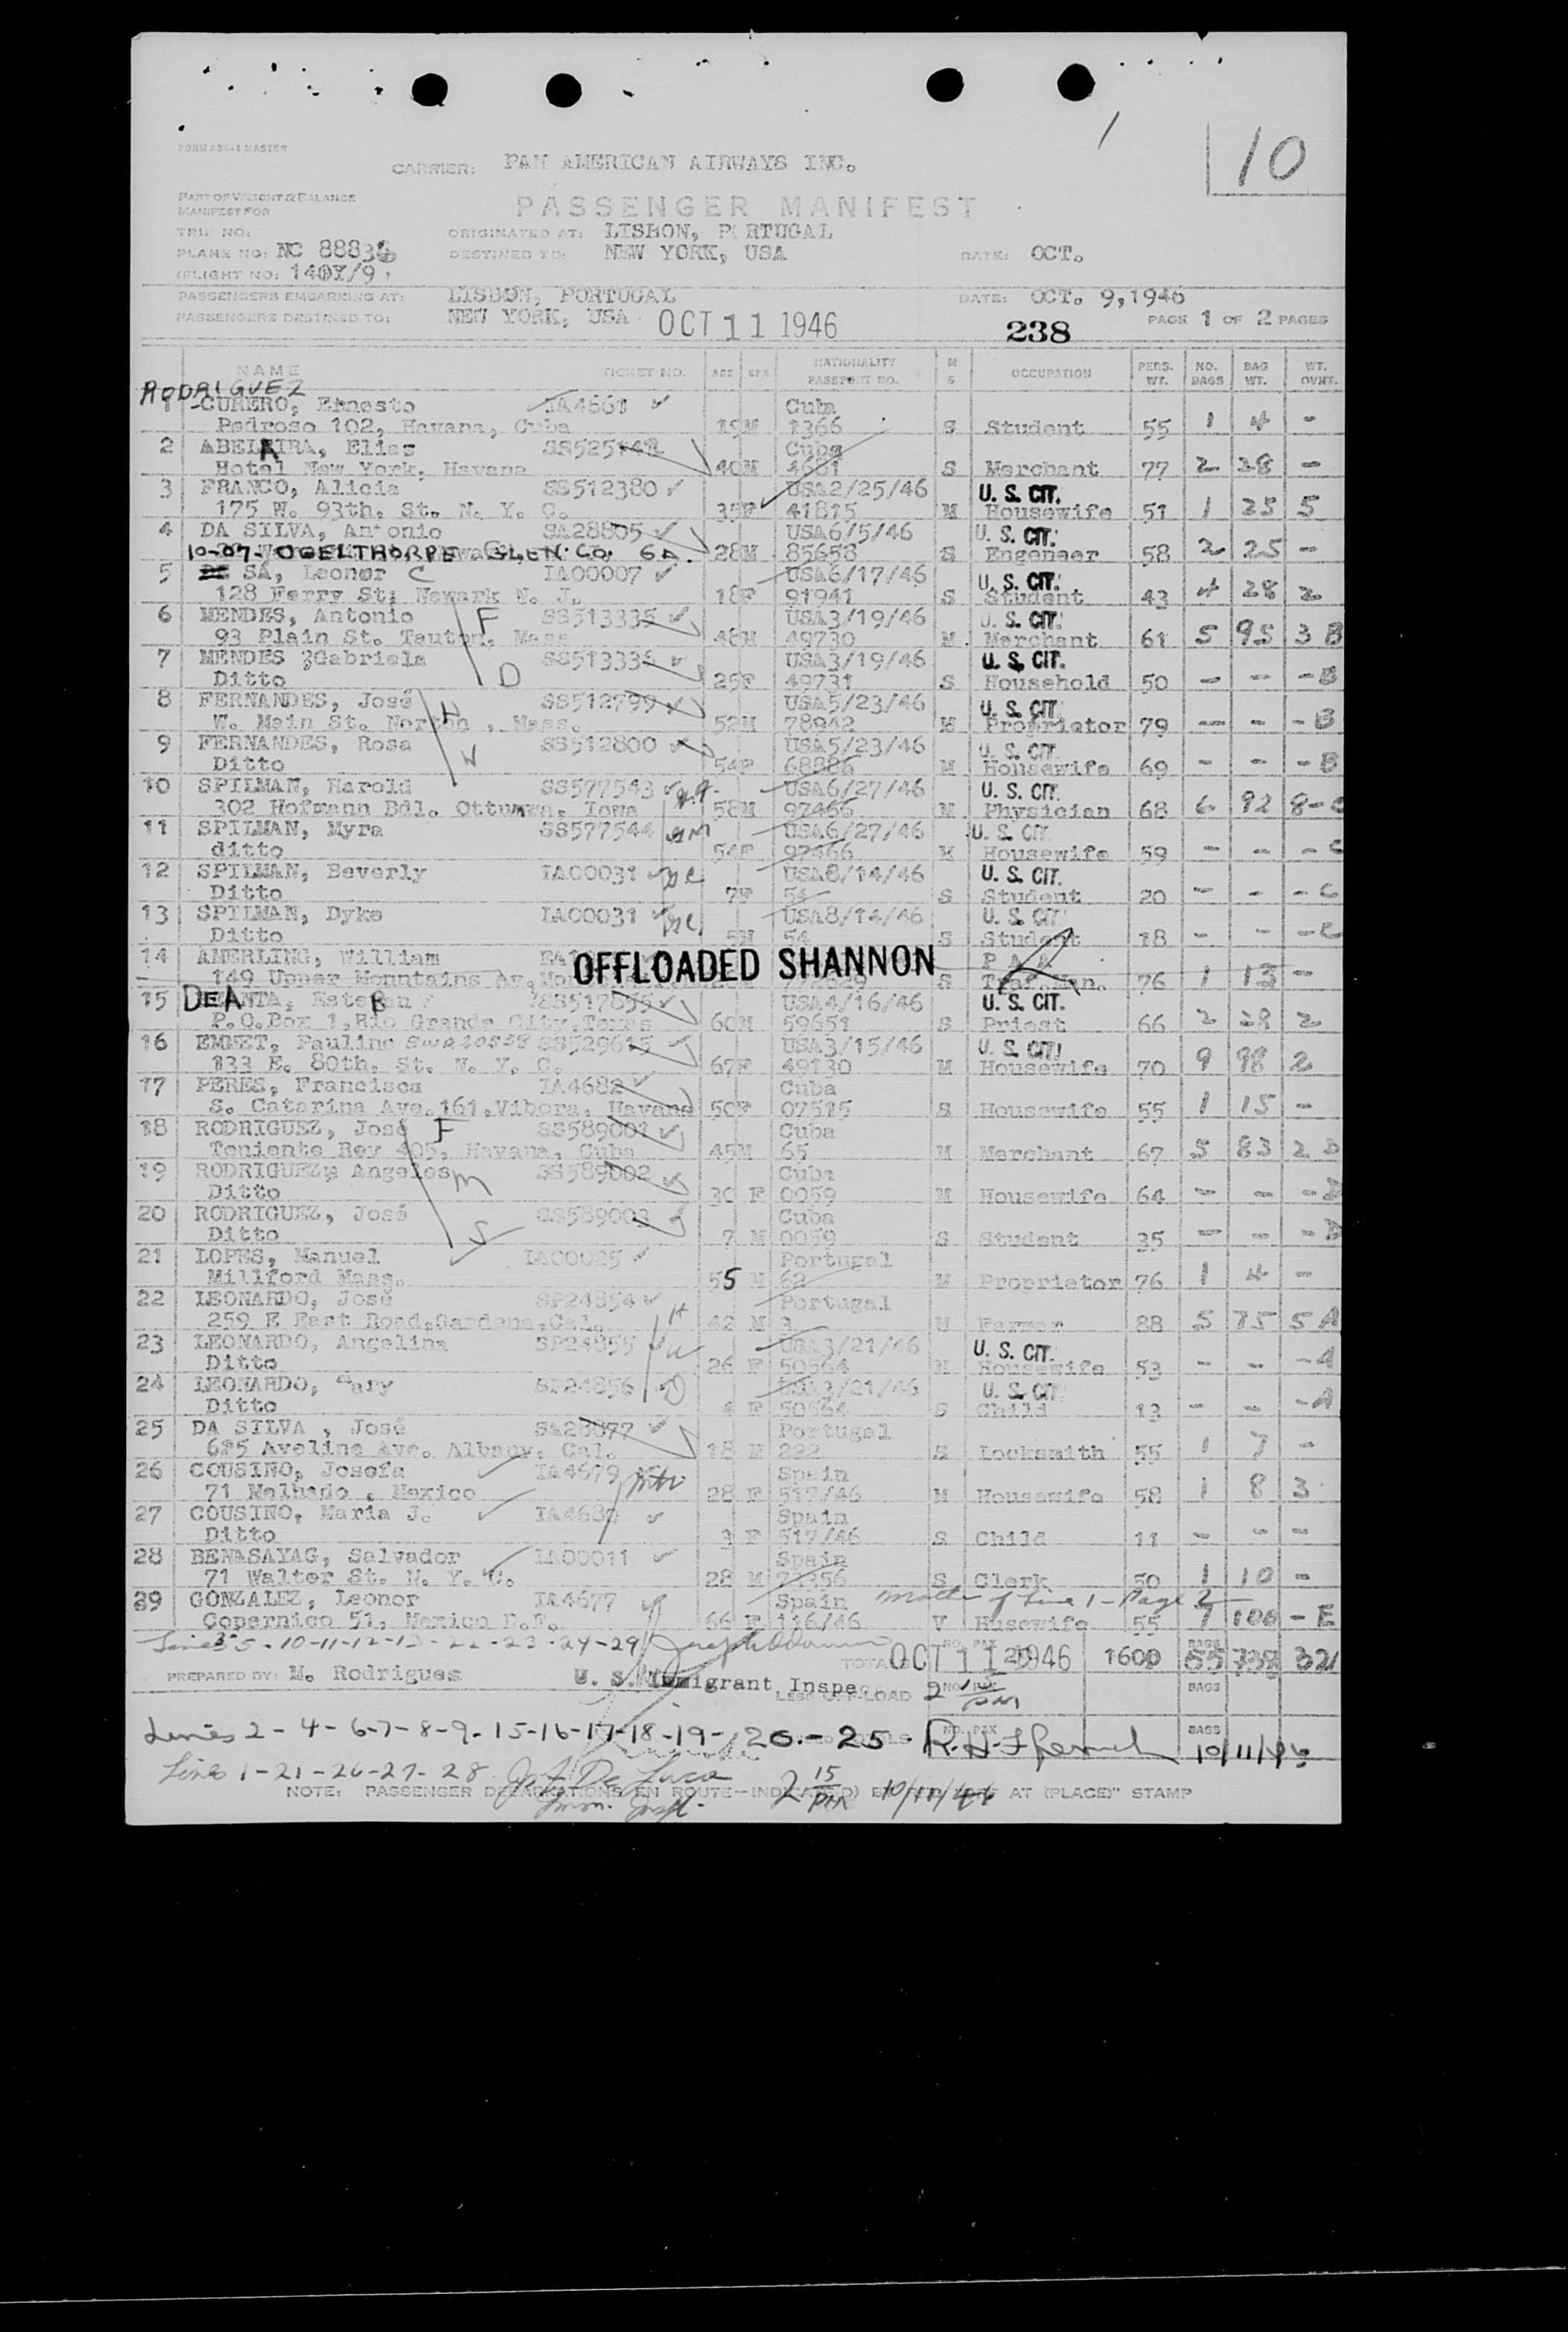 10
FORM A34-1 MASTER
CARRIER: PAN AMERICAN AIRWAYS INC.
PART OF WEIGHT & BALANCE
MANIFEST FOR
PASSENGER MANIFEST
TRIP NO:
ORIGINATED AT: LISBON, PORTUGAL
PLANE NO: NC 8883
DESTINED TO: NEW YORK, USA
DATE: OCT.
(FLIGHT NO: 140Y/9)
PASSENGERS EMBARKING AT: LISBON, PORTUGAL
DATE: OCT. 9,1946
PASSENGERS DESTINED TO: NEW YORK, USA OCT 11 1946
238
PAGE 1 OF 2 PAGES
NAME TICKET NO. AGE SEX NATIONALITY PASSPORT NO. M S OCCUPATION PERS. WT. NO. BAGS BAG WT. WT. OVWT.
RODRIGUEZ
1 CURERO, Ernesto IA4661 Cuba
Pedroso 102, Havana, Cuba 19M 1366 S Student 55 1 4 -
2 ABELAIRA, Elias Cuba
Hotel New York, Havana 40M 4681 S Merchant 77 2 28 -
3 FRANCO, Alicia SS512380 USA2/25/46 U. S. CIT.
175 W. 93th, St. N. Y. C. 35F 41815 M Housewife 51 1 25 5
4 DA SILVA, Antonio SA28805 USA6/5/46 U. S. CIT.
10-07- OGELTHORPE GLEN. CO. GA. 28M 85658 S Engeneer 58 2 25 -
5 SÁ, Leonor C IA00007 USA6/17/46 U. S. CIT.
128 Ferry St; Newark N. J. 18F 91941 S Student 43 4 28 2
6 MENDES, Antonio F SS513335 USA3/19/46 U. S. CIT.
93 Plain St. Tauton, Mass 48M 49730 M Merchant 61 5 95 3 B
7 MENDES, Gabriela SS513336 USA3/19/46 U. S. CIT.
Ditto D 25F 49731 S Household 50 - - - B
8 FERNANDES, José H SS512799 USA5/23/46 U. S. CIT
W. Main St. Norton, Mass. 52M 78942 M Proprietor 79 - - - B
9 FERNANDES, Rosa W SS512800 USA5/23/46 U. S. CIT.
Ditto 54F 68886 M Housewife 69 - - - B
10 SPILMAN, Harold SS577543 USA6/27/46 U. S. CIT.
302 Hofmann Bdl. Ottumwa, Iowa 58M 97466 M Physician 68 6 92 8-C
11 SPILMAN, Myra SS577544 USA6/27/46 U. S. CIT
ditto 54F 97466 M Housewife 59 - - - C
12 SPILMAN, Beverly IA00031 USA8/14/46 U. S. CIT.
Ditto 7F 54 S Student 20 - - - C
13 SPILMAN, Dyke IA00031 USA8/14/46 U. S. CIT
Ditto 5M 54 S Student 18 - - - C
14 AMERLING, William P A A
OFFLOADED SHANNON
149 Upper Mountains Av. S Traf.Man. 76 1 13 -
15 DE A Esteban USA4/16/46 U. S. CIT.
P.O.Box 1, Rio Grande City, Texas 60M 59651 S Priest 66 2 28 2
16 EMMET, Pauline SS529615 USA3/15/46 U. S. CIT
133 E. 80th, St. N. Y. C. 67F 49130 M Housewife 70 9 98 2
17 PERES, Francisca IA4682 Cuba
S. Catarina Ave. 161, Vibora, Havana 50F 07515 S Housewife 55 1 15 -
18 RODRIGUEZ, José F SS589001 Cuba
Teniente Rey 405, Havana, Cuba 45M 65 M Merchant 67 5 83 2 D
19 RODRIGUEZ, Angeles M SS589002 Cuba
Ditto 30 F 0059 M Housewife 64 - - - D
20 RODRIGUEZ, José SS589003 Cuba
Ditto S 7 M 0059 S Student 35 - - - D
21 LOPES, Manuel IA00025 Portugal
Millford Mass. 55 M 62 M Proprietor 76 1 4 -
22 LEONARDO, José SP24854 H Portugal
259 E East Road, Gardena, Cal. 42 M 3 M Farmer 88 5 85 5 A
23 LEONARDO, Angelina SP24855 W USA3/21/46 U. S. CIT.
Ditto 26 F 50564 M Housewife 53 - - - A
24 LEONARDO, Mary SP24856 D USA3/21/46 U. S. CIT
Ditto 4 F 50564 S Child 13 - - - A
25 DA SILVA , José SA28077 Portugal
685 Aveline Ave. Albany, Cal. 18 M 222 S Locksmith 55 1 7 -
26 COUSINO, Josefa IA4679 Spain
71 Malhado , Mexico 28 F 517/46 M Housewife 58 1 8 3
27 COUSINO, Maria J. IA4680 Spain
Ditto 3 F 517/46 S Child 11 - - -
28 BENASAYAG, Salvador IA00011 Spain
71 Walter St. N. Y. C. 28 M S Clerk 50 1 10 -
29 GONZALEZ, Leonor IA4677 Spain Mother of Line 1 - Page 2
Copernico 51, Mexico D.F. 66 F 116/46 V Husewife 55 7 100 - E
Lines 3-5-10-11-12-13-22-23-24-29
TOTALS OCT 11 1946 1600 55 738 321
PREPARED BY: M. Rodrigues
U. S. Immigrant Inspec
LESS OFF-LOAD
BAGS
Lines 2-4-6-7-8-9-15-16-17-18-19-20-25 NO. PAX BAGS
10/11/46
Lines 1-21-26-27-28 De Luca
Imm. Insp. 2 15 PM 10/11/46
NOTE: PASSENGER DEBARKATIONS EN ROUTE—INDICATED BY AT (PLACE)" STAMP